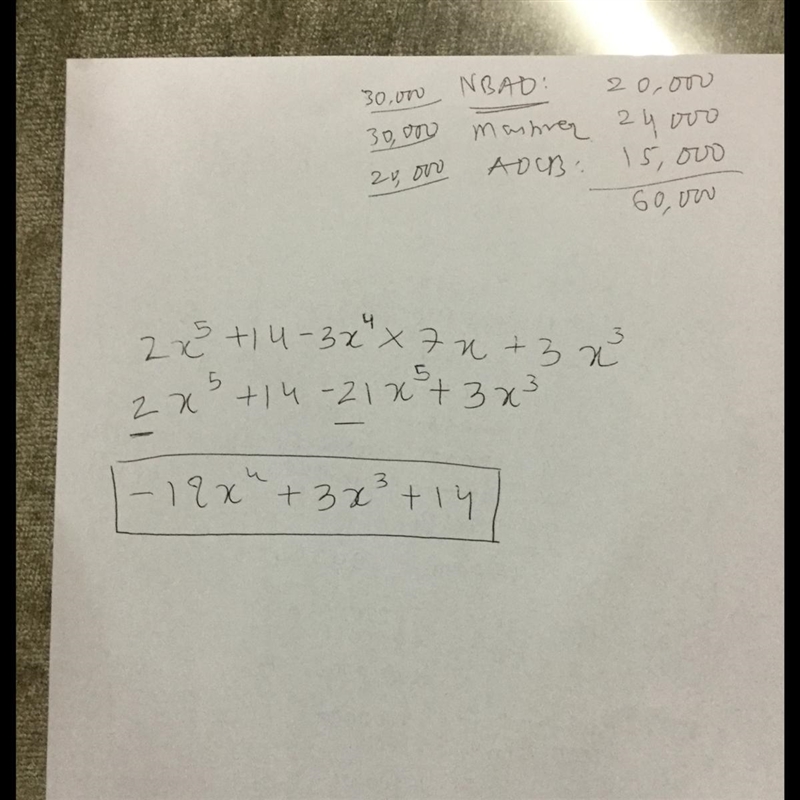 30,000 NBAD: 20,000
30,000 Mashreq 24000
20,000 ADCB: 15,000
60,000
2x⁵ +14 -3x⁴ × 7x + 3x³
2x⁵ +14 -21x⁵ + 3x³
-19x⁴ + 3x³ +14